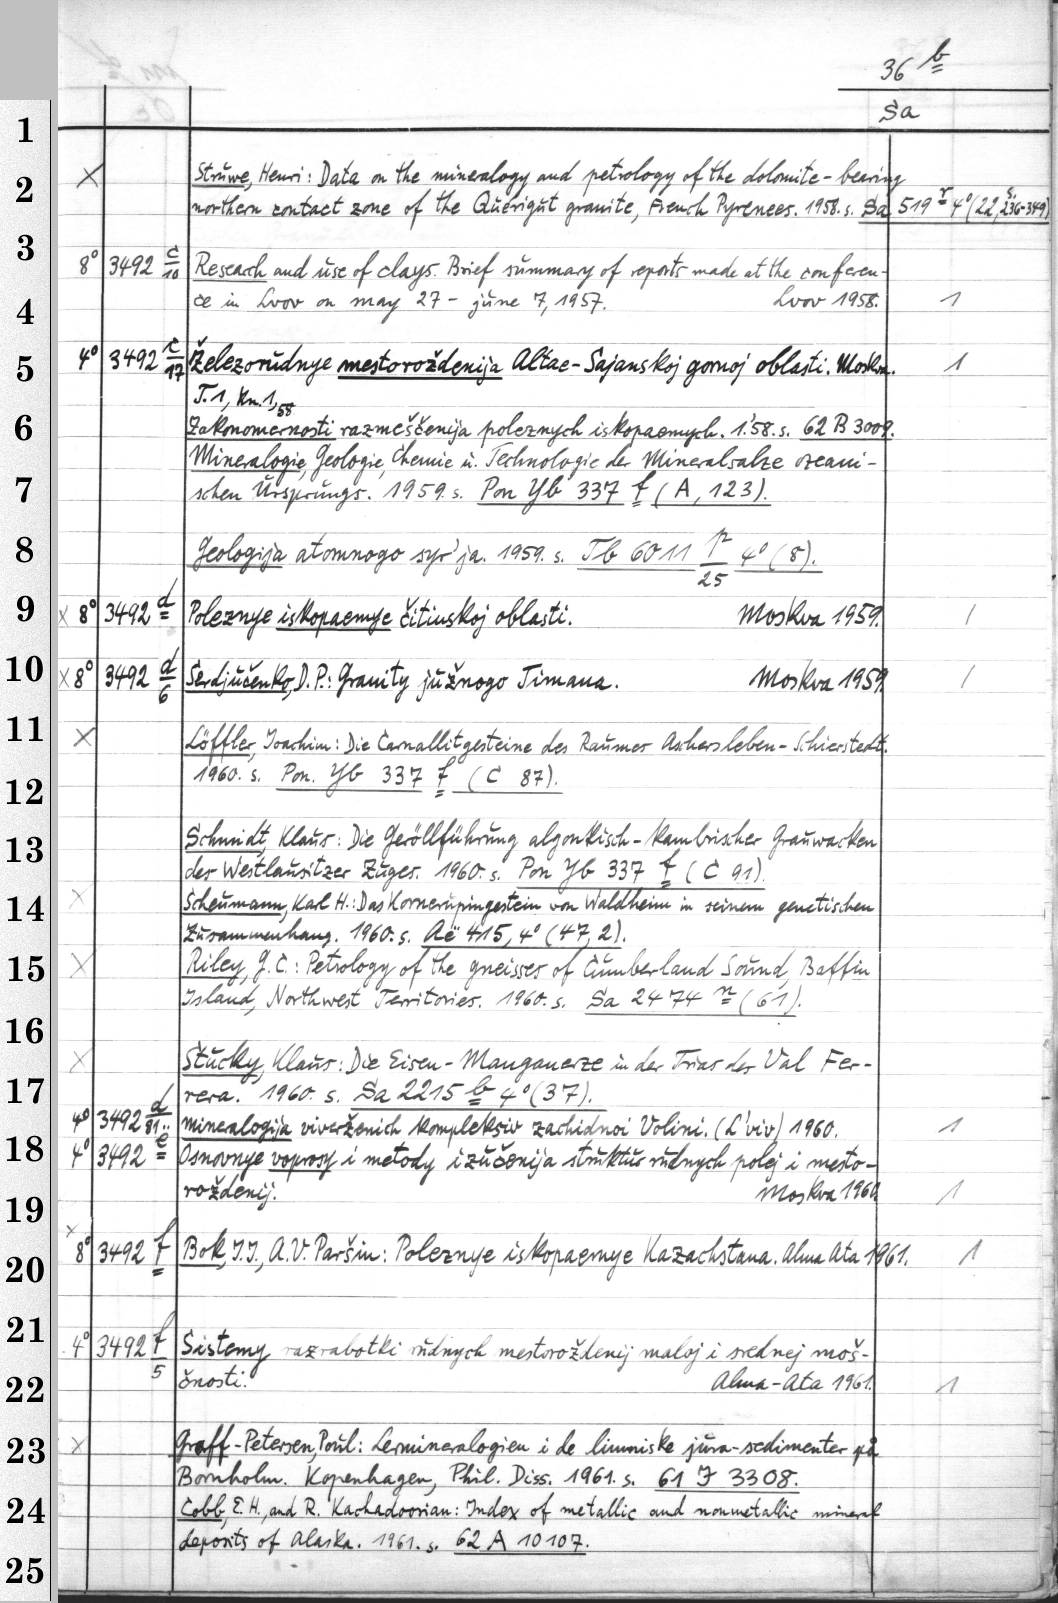 36 b
Sa
1
2
3
4
5
6
7
8
9
10
11
12
13
14
15
16
17
18
19
20
21
22
23
24
25
× Struwe, Henri: Data on the mineralogy and petrology of the dolomite-bearing
northern contact zone of the Quérigut granite, French Pyrenees. 1958. s. Sa 519 r 4° (22, S. 236-349)
8° 3492 c/10 Research and use of clays. Brief summary of reports made at the conferen-
ce in Lvov on may 27 - june 7, 1957. Lvov 1958. 1
4° 3492 c/17 Železorudnye mestoroždenija Altae-Sajanskoj gornoj oblasti. Moskva. 1
T. 1, Kn. 1, 58
Zakonomernosti razmeščenija poleznych iskopaemych. 1.'58. s. 62 B 3009.
Mineralogie, Geologie, Chemie u. Technologie der Mineralsalze ozeani-
schen Ursprungs. 1959. s. Pon Yb 337 f (A, 123).
Geologija atomnogo syr'ja. 1959. s. Tb 6011 p/25 4° (8).
× 8° 3492 d Poleznye iskopaemye čitinskoj oblasti. Moskva 1959. 1
× 8° 3492 d/6 Serdjučenko, D.P.: Granity južnogo Timana. Moskva 1959. 1
× Löffler, Joachim: Die Carnallitgesteine des Raumes Aschersleben-Schierstedt.
1960. s. Pon. Yb 337 f (C 87).
Schmidt, Klaus: Die Geröllführung algonkisch-kambrischer Grauwacken
des Westlausitzer Zuges. 1960. s. Pon Yb 337 f (C 91).
× Scheumann, Karl H.: Das Kornerupingestein von Waldheim in seinem genetischen
Zusammenhang. 1960. s. Aë 415, 4° (47, 2).
× Riley, G.C.: Petrology of the gneisses of Cumberland Sound, Baffin
Island, Northwest Territories. 1960. s. Sa 2474 n (61).
× Stucky, Klaus: Die Eisen-Manganerze in der Trias des Val Fer-
rera. 1960. s. Sa 2215 b 4° (37).
4° 3492 d/81 mineralogija viverženich kompleksiv zachidnoi Volini. (L'viv) 1960. 1
4° 3492 e Osnovnye voprosy i metody izučenija struktur rudnych polej i mesto-
roždenij. Moskva 1960. 1
× 8° 3492 f Bok, I.I., A.V. Paršin: Poleznye iskopaemye Kazachstana. Alma Ata 1961. 1
4° 3492 f/5 Sistemy razrabotki rudnych mestoroždenij maloj i srednej moš-
čnosti. Alma-Ata 1961. 1
× Graff-Petersen, Poul: Lermineralogien i de limniske jura-sedimenter på
Bornholm. Kopenhagen, Phil. Diss. 1961. s. 61 J 3308.
Cobb, E. H., and R. Kachadoorian: Index of metallic and nonmetallic mineral
deposits of Alaska. 1961. s. 62 A 10107.